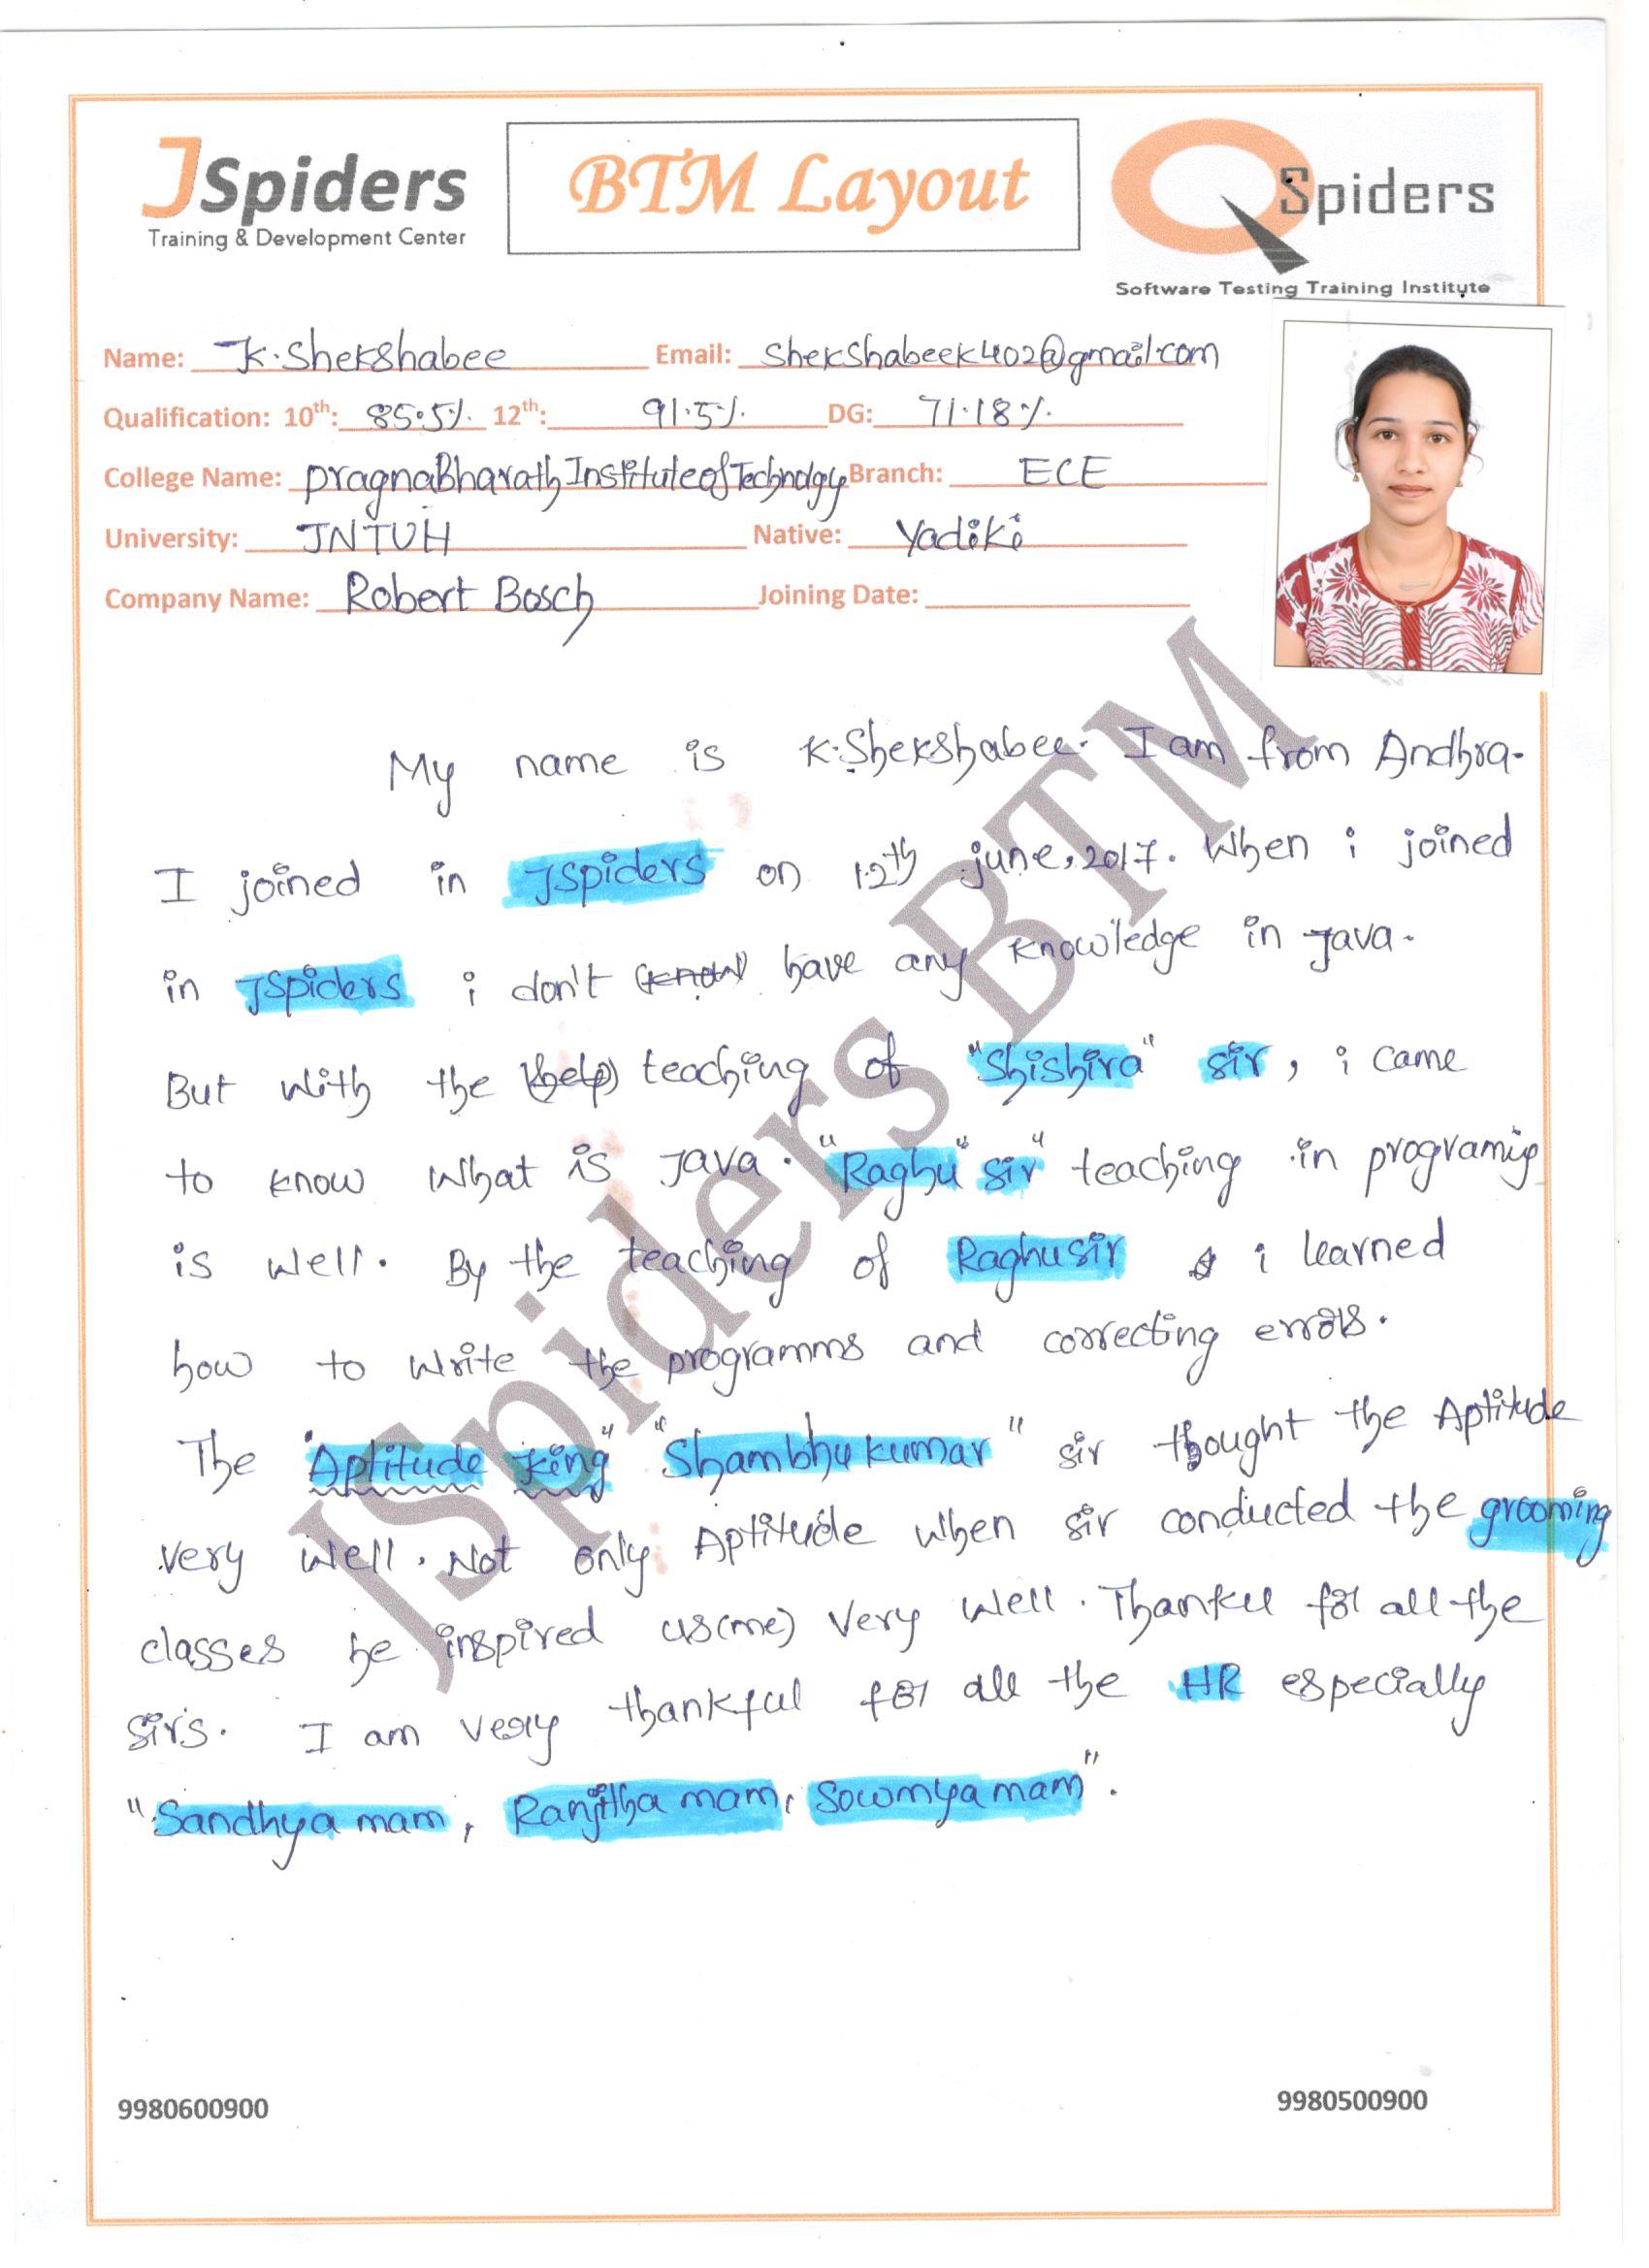 JSpiders
Training & Development Center
BTM Layout
QSpiders
Software Testing Training Institute
Name: K.Shekshabee Email: shekshabeek402@gmail.com
Qualification: 10th: 85.5% 12th: 91.5% DG: 71.18%
College Name: PragnaBharath Institute of Technology Branch: ECE
University: JNTUH Native: Yadiki
Company Name: Robert Bosch Joining Date:
My name is K.Shekshabee. I am from Andhra.
I joined in JSpiders on 12th june, 2017. When i joined
in JSpiders i don't (know) have any knowledge in Java.
But with the (help) teaching of "Shishira" sir, i came
to know what is Java. "Raghu" sir" teaching in programing
is well. By the teaching of Raghu sir i learned
how to write the programms and correcting errors.
The "Aptitude king" "Shambhu kumar" sir thought the Aptitude
very well. Not only Aptitude when sir conducted the grooming
classes he inspired us(me) very well. Thankul for all the
sir's. I am very thankful for all the HR especially
"Sandhya mam, Ranjitha mam, Sowmya mam".
JSpiders BTM
9980600900
9980500900